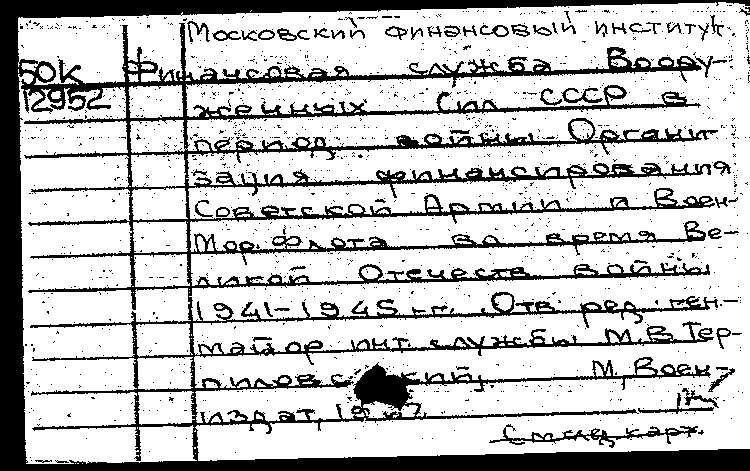 Московский финансовый институт.
50к Финансовая служба Воору-
12952 женных Сил СССР в
период войны. Органи-
зация финансирования
Советской Армии и Воен-
Мор. Флота во время Ве-
ликой Отечеств. войны
1941-1945 гг. Отв. ред. ген-
майор инт. службы М.В. Тер-
пиловский. М., Воен-
издат, 19
След. карт.